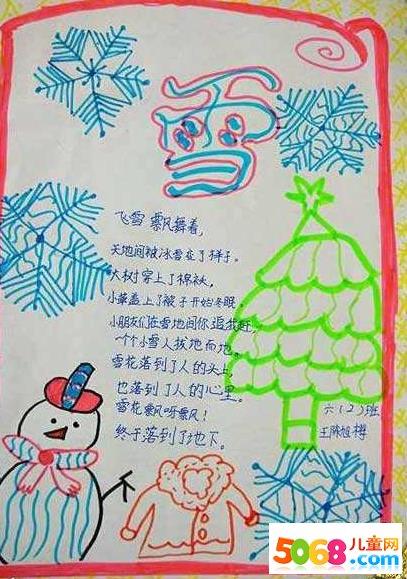 雪
飞雪飘风舞着,
天地间被冰雪在了样子。
大树穿上了棉袄,
小草盖上了被子开始冬眠。
小朋友们在雪地间你追我赶,
一个个小雪人拔地而地。
雪花落到了人的头上,
也落到了人的心里。
雪花飘呀飘!
终于落到了地下。
六(2)班
王陈旭
5068儿童网
www.5068.com